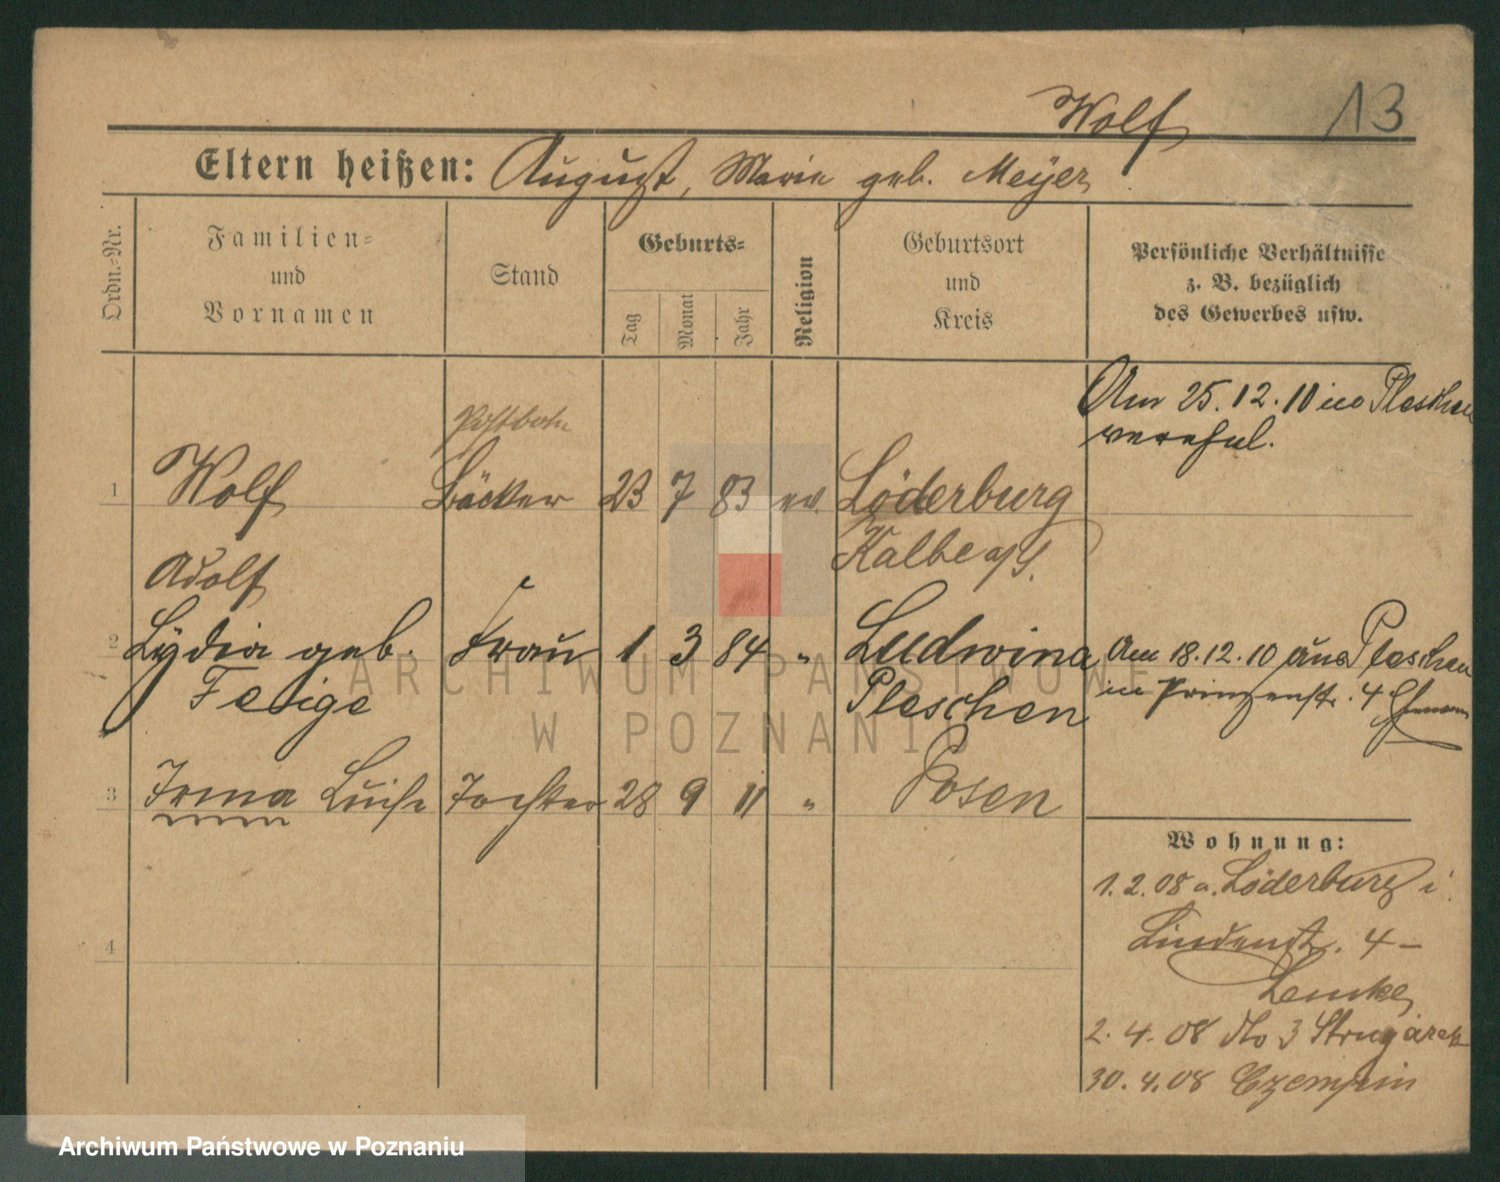 Wolf 13
Eltern heißen: August, Marie geb. Meyer
Ordn.-Nr.
Familien-
und
Vornamen
Stand
Geburts-
Tag
Monat
Jahr
Religion
Geburtsort
und
Kreis
Persönliche Verhältnisse
z. B. bezüglich
des Gewerbes usw.
Am 25.12.10 in Pleschen
verehel.
Postbote
1 Wolf Bäcker 23 7 83 ev. Löderburg
Kalbe a/S.
Adolf
2 Lydia geb. Frau 1 3 84 " Ludwina
Feige Pleschen
Am 18.12.10 aus Pleschen
in Prinzenstr. 4 Ehemann
3 Irma Luise Tochter 28 9 11 " Posen
4
Wohnung:
1.2.08 a. Löderburg i
Lindenstr. 4 -
Lemke
2.4.08 dto 3 Strugarek
30.4.08 Czempin
ARCHIWUM PAŃSTWOWE
W POZNANIU
Archiwum Państwowe w Poznaniu